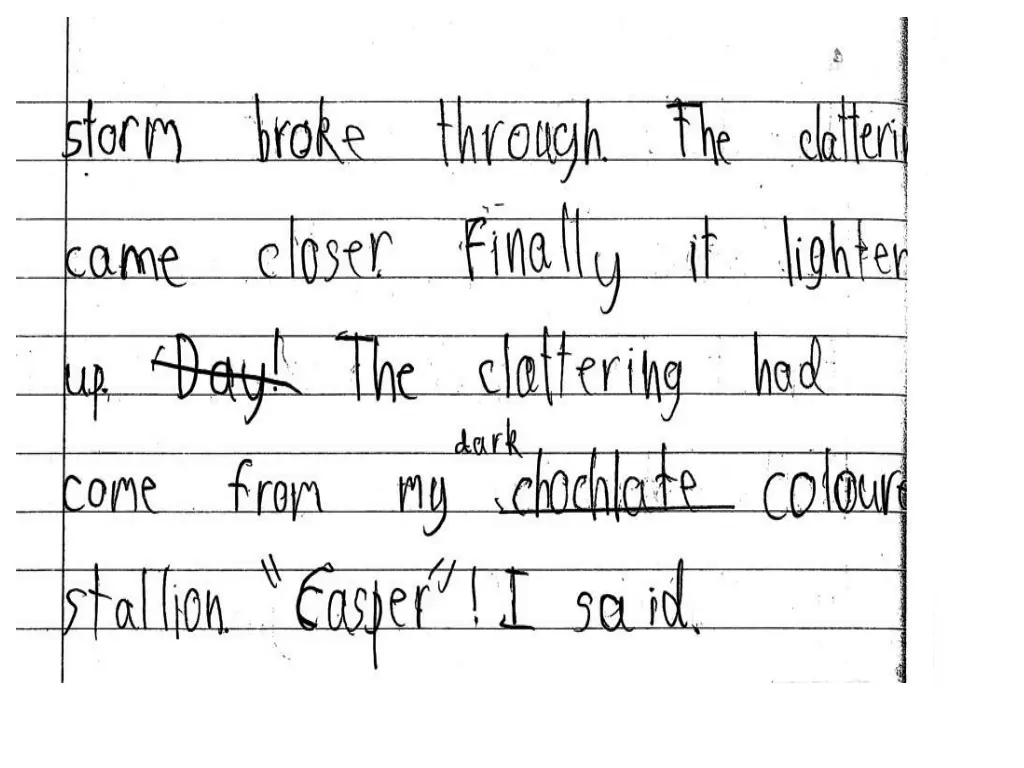 storm broke through. The clatterin
came closer. Finally it lighten
up. Day! The clattering had
dark
come from my chochlate coloure
stallion. "Casper"! I said.